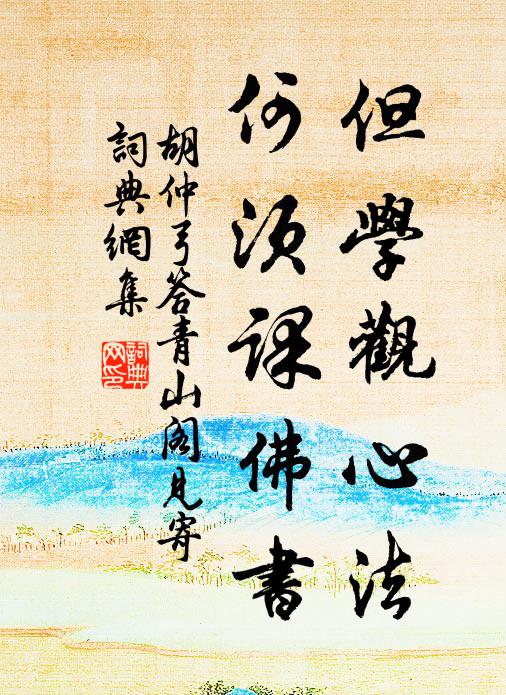 但學觀心法
何須課佛書
胡仲弓答青山閣見寄
詞典網集
詞典
網印